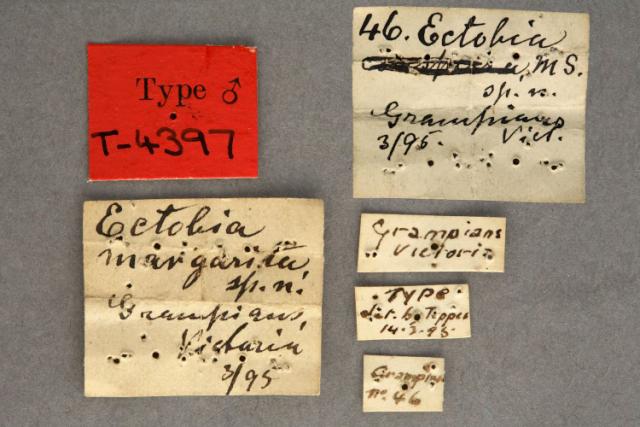 Type ♂
T-4397
46. Ectobia
M S.
sp. n.
Grampians
3/95. Vict.
Ectobia
margarita
sp. n.
Grampians,
Victoria
3/95
Grampians
Victoria
TYPE
Tepper
14.3.95.
Grampians
no. 46